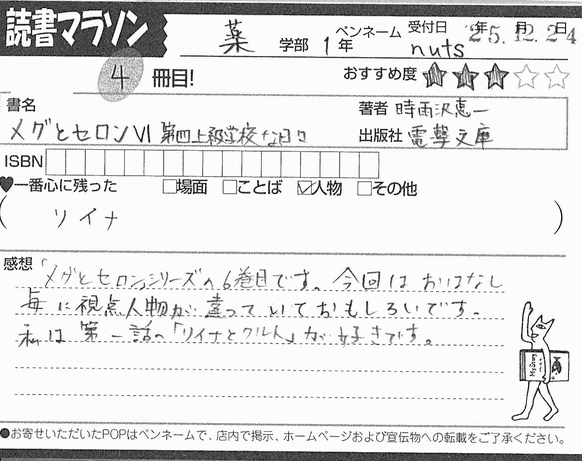 読書マラソン
薬 学部 1年 ペンネーム nuts 受付日 '25年12月24日
4 冊目! おすすめ度 ★★★☆☆
書名 メグとセロンVI 第四上級学校な日々
著者 時雨沢恵一
出版社 電撃文庫
ISBN
♥一番心に残った □場面 □ことば ☑人物 □その他
( リイナ )
感想 「メグとセロン」シリーズの6巻目です。今回はおはなし
毎に視点人物が違っていておもしろいです。
私は第一話の「リイナとクルト」が好きです。
●お寄せいただいたPOPはペンネームで、店内で掲示、ホームページおよび宣伝物への転載をご了承ください。